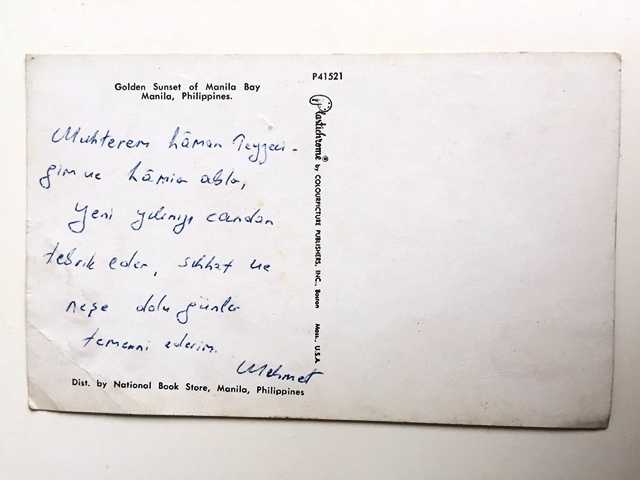 Golden Sunset of Manila Bay
Manila, Philippines.
P41521
Plastichrome® by COLOURPICTURE PUBLISHERS, INC., Boston Mass., U.S.A.
Muhterem hâman Teyzeci-
ğim ve hâmia abla,
Yeni yılınızı candan
tebrik eder, sıhhat ve
neşe dolu günler
temenni ederim.
Mehmet
Dist. by National Book Store, Manila, Philippines